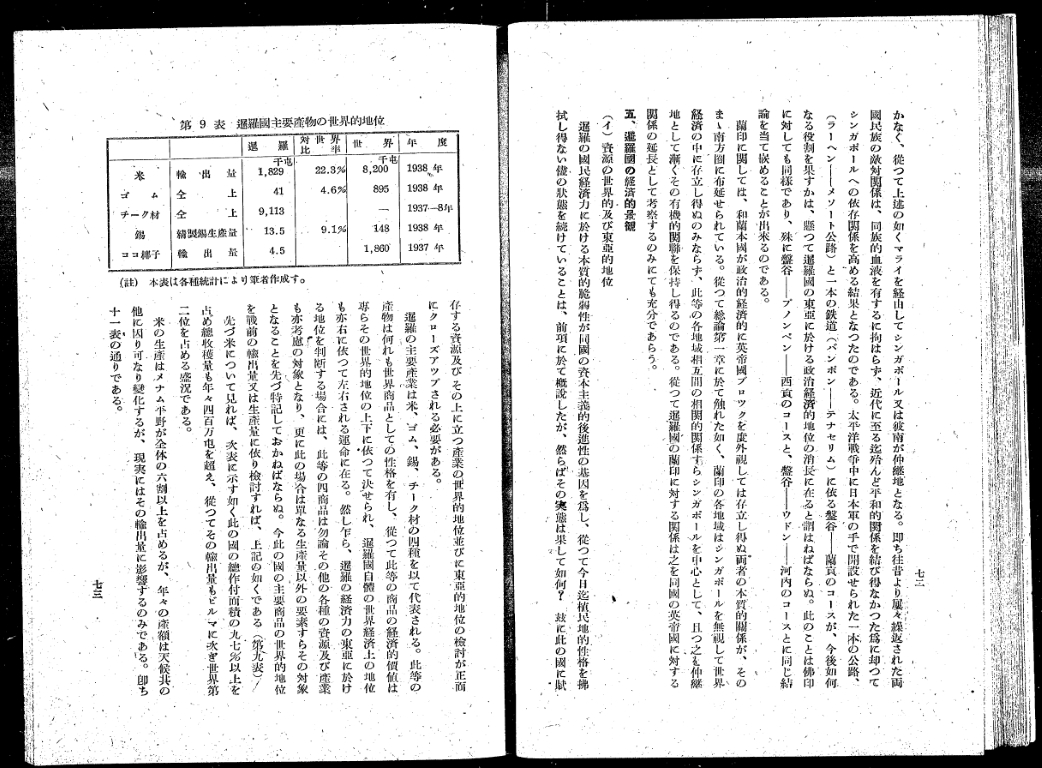 七二
かなく、從つて上述の如くマライを経由してシンガポール又は彼南が仲継地となる。卽ち往昔より屢々繰返された両
國民族の敵対関係は、同族的血液を有するに拘はらず、近代に至る迄殆んど平和的関係を結び得なかつた爲に却つて
シンガポールへの依存関係を高める結果となつたのである。太平洋戦争中に日本軍の手で開設せられた一本の公路、
(ラーヘン――メソート公路)と一本の鉄道(バンポン――テナセリム)に依る盤谷――蘭貢のコースが、今後如何
なる役割を果すかは、懸つて暹羅國の東亞に於ける政治経済的地位の消長に在ると謂はねばならぬ。此のことは佛印
に対しても同様であり、殊に盤谷――プノンペン――西貢のコースと、盤谷――ウドン――河內のコースとに同じ結
論を当て嵌めることが出来るのである。
蘭印に関しては、和蘭本國が政治的経済的に英帝國ブロックを度外視しては存立し得ぬ両者の本質的関係が、その
まゝ南方圏に布延せられている。從つて総論第一章に於て触れた如く、蘭印の各地域はシンガポールを無視して世界
経済の中に存立し得ぬのみならず、此等の各地域相互間の相関的関係すらシンガポールを中心として、且つ之を仲継
地として漸くその有機的関聯を保持し得るのである。從つて暹羅國の蘭印に対する関係は之を同國の英帝國に対する
関係の延長として考察するのみにても充分であらう。
五、暹羅國の経済的景観
(イ)資源の世界的及び東亞的地位
暹羅の國民経済力に於ける本質的脆弱性が同國の資本主義的後進性の基因を爲し、從つて今日迄植民地的性格を拂
拭し得ない儘の状態を続けていることは、前項に於て概說したが、然らばその実態は果して如何? 玆に此の國に賦
第9表 暹羅國主要產物の世界的地位
暹羅 対世界比率 世界 年度
米 輸出量 千屯 1,829 22.3% 千屯 8,200 1938年
ゴム 仝上 41 4.6% 895 1938年
チーク材 仝上 9,113 — 1937—8年
錫 精製錫生產量 13.5 9.1% 148 1938年
ココ椰子 輸出量 4.5 1,860 1937年
(註) 本表は各種統計により筆者作成す。
存する資源及びその上に立つ産業の世界的地位並びに東亞的地位の検討が正面
にクローズアップされる必要がある。
暹羅の主要產業は米、ゴム、錫、チーク材の四種を以て代表される。此等の
產物は何れも世界商品としての性格を有し、從つて此等の商品の経済的價値は
專らその世界的地位の上下に依つて決せられ、暹羅國自體の世界経済上の地位
も亦右に依つて左右される運命に在る。然し乍ら、暹羅の経済力の東亞に於け
る地位を判断する場合には、此等の四商品は勿論その他の各種の資源及び產業
も亦考慮の対象となり、更に此の場合は單なる生產量以外の要素すらその対象
となることを先づ特記しておかねばならぬ。今此の國の主要商品の世界的地位
を戰前の輸出量又は生產量に依り検討すれば、上記の如くである(第九表)
先づ米について見れば、次表に示す如く此の國の總作付面積の九七%以上を
占め總收穫量も年々四百万屯を超え、從つてその輸出量もビルマに次ぎ世界第
二位を占める盛況である。
米の生產はメナム平野が全体の六割以上を占めるが、年々の產額は天候其の
他に因り可なり変化するが、現実にはその輸出量に影響するのみである。卽ち
十一表の通りである。
七三